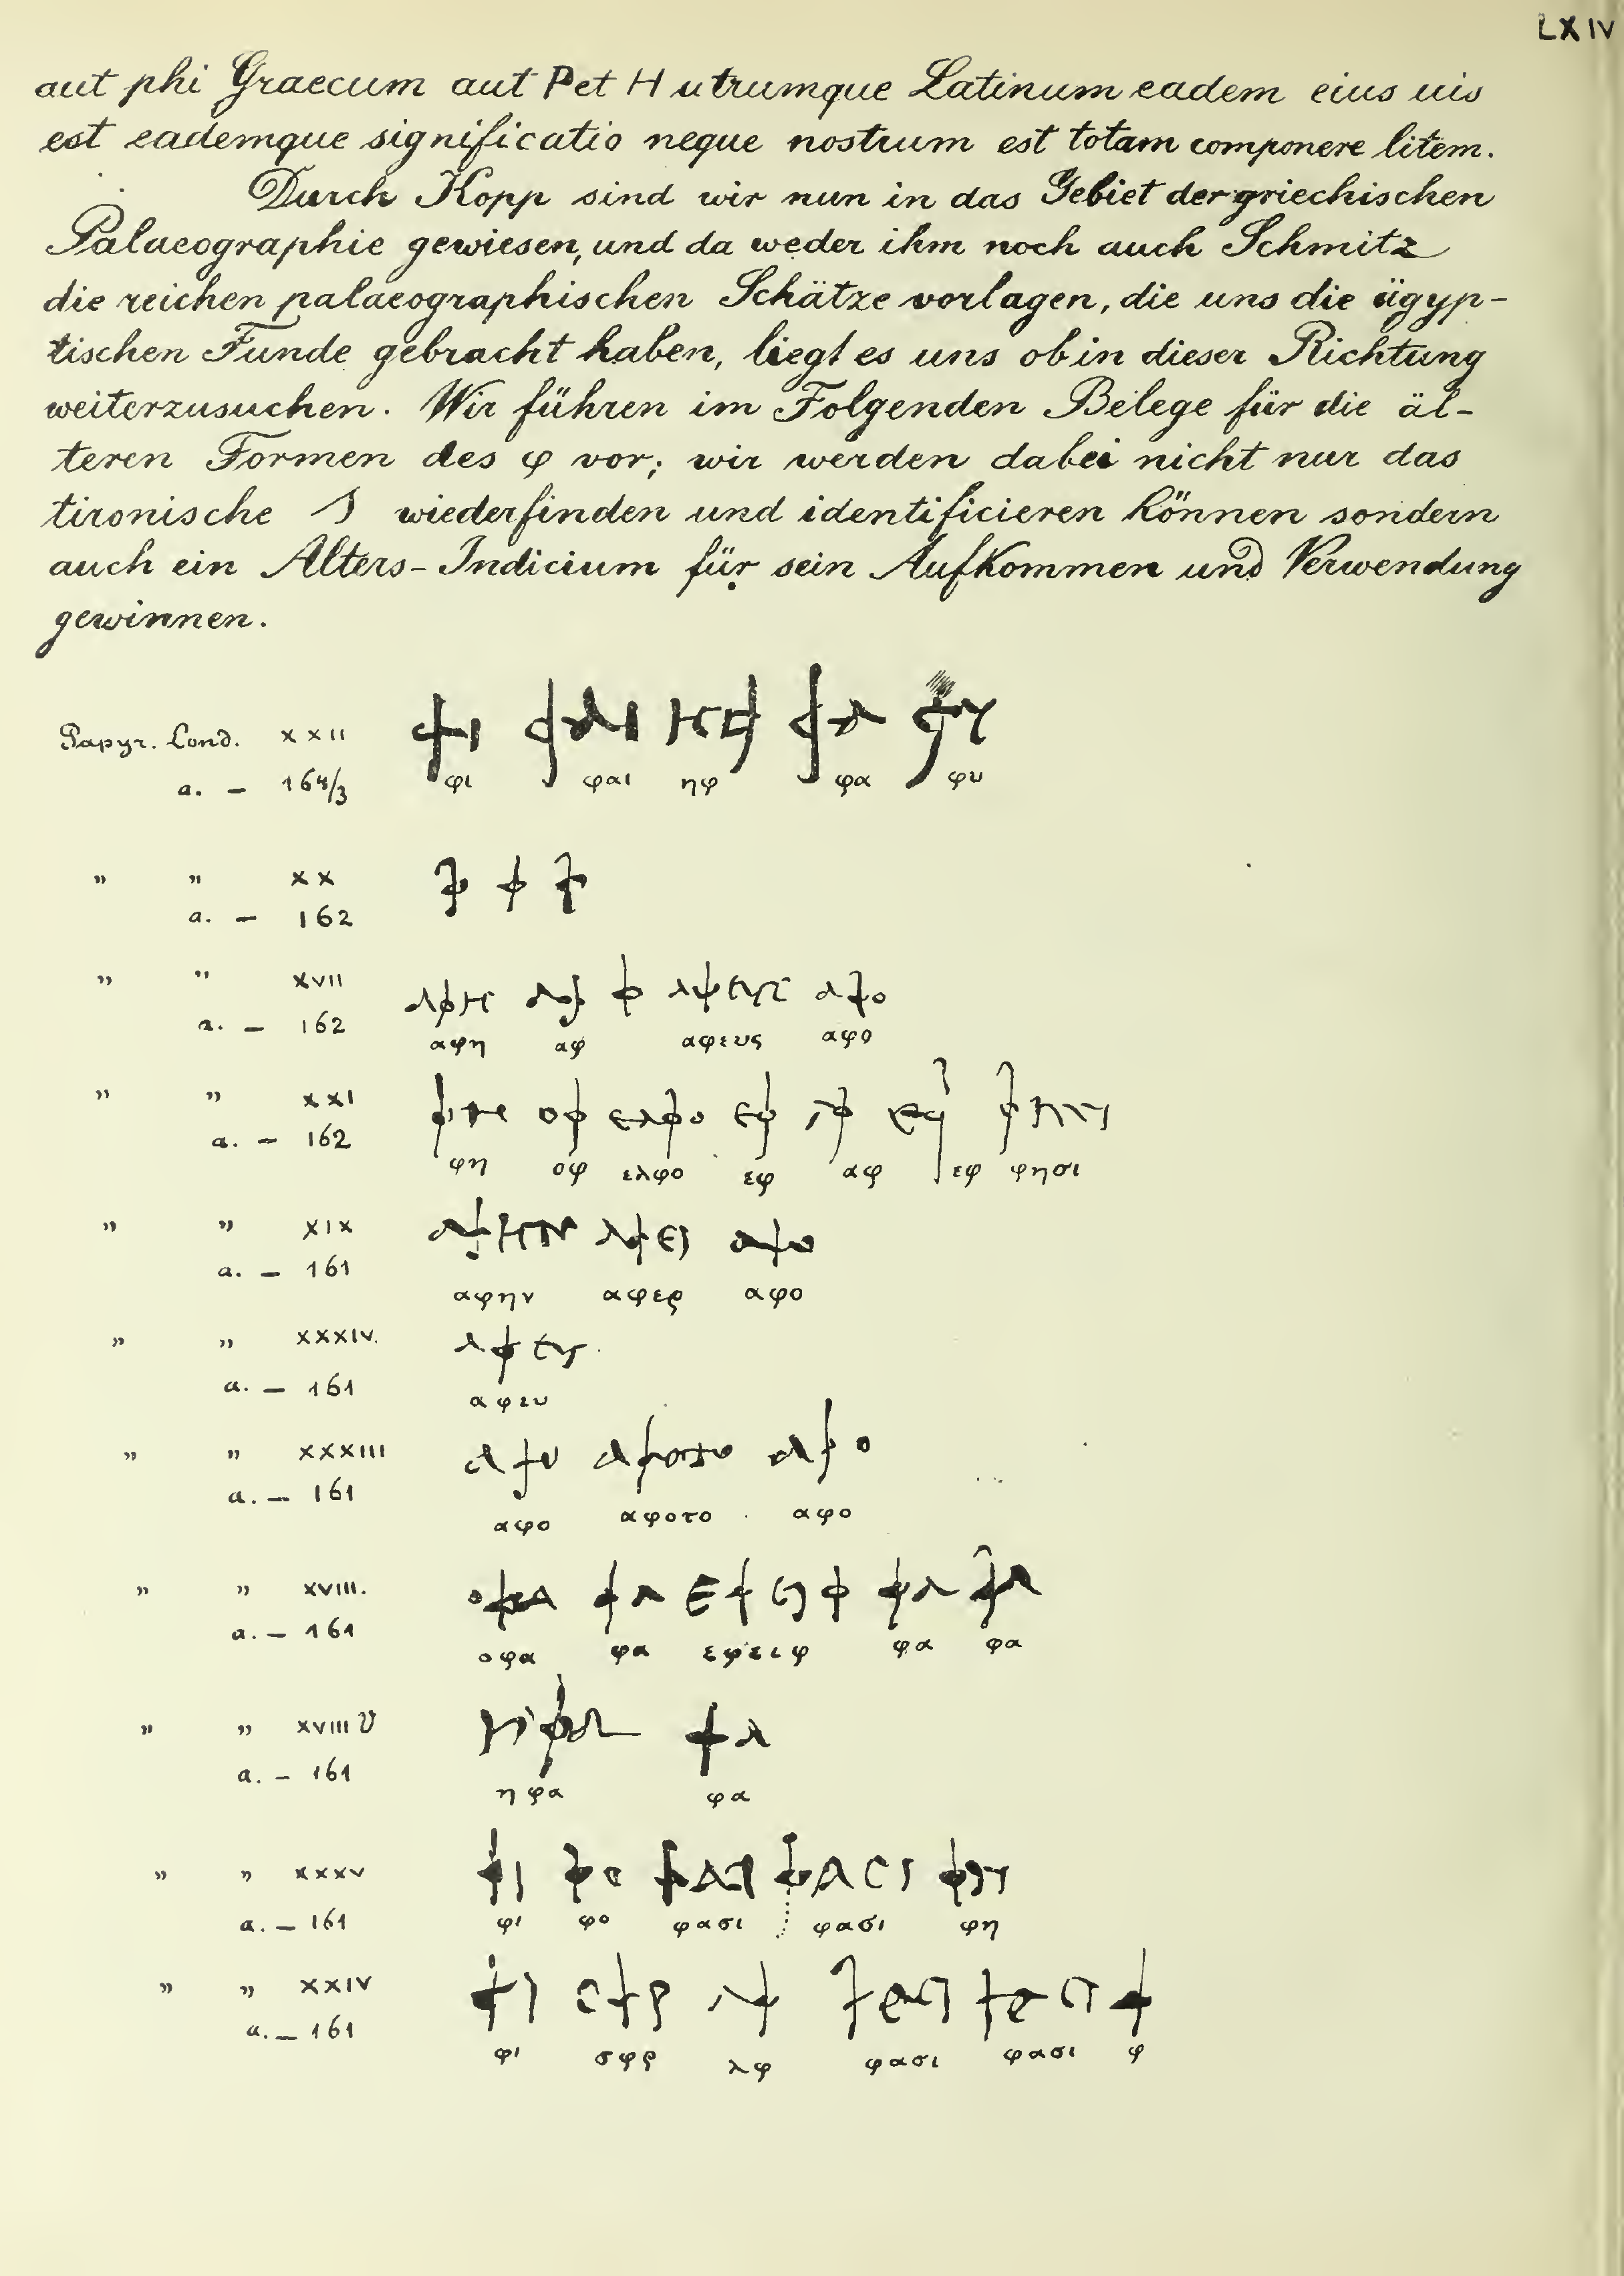 LXIV
aut phi Graecum aut P et H utrumque Latinum eadem eius uis
est eademque significatio neque nostrum est totam componere litem.
Durch Kopp sind wir nun in das Gebiet der griechischen
Palaeographie gewiesen, und da weder ihm noch auch Schmitz
die reichen palaeographischen Schätze vorlagen, die uns die ägyp-
tischen Funde gebracht haben, liegt es uns ob in dieser Richtung
weiterzusuchen. Wir führen im Folgenden Belege für die äl-
teren Formen des φ vor; wir werden dabei nicht nur das
tironische wiederfinden und identificieren können sondern
auch ein Alters-Indicium für sein Aufkommen und Verwendung
gewinnen.
Papyr. Lond. XXII
a. – 164/3
φι φαι ηφ φα φυ
” ” XX
a. – 162
” ” XVII
a. – 162
αφη αφ αφευς αφο
” ” XXI
a. – 162
φη οφ ελφο εφ αφ εφ φησι
” ” XIX
a. – 161
αφην αφερ αφο
” ” XXXIV.
a. – 161
αφευ
” ” XXXIII
a. – 161
αφο αφοτο αφο
” ” XVIII.
a. – 161
οφα φα εφειφ φα φα
” ” XVIII
a. – 161
ηφα φα
” ” XXXV
a. – 161
φι φο φασι φασι φη
” ” XXIV
a. – 161
φι σφρ λφ φασι φασι φ